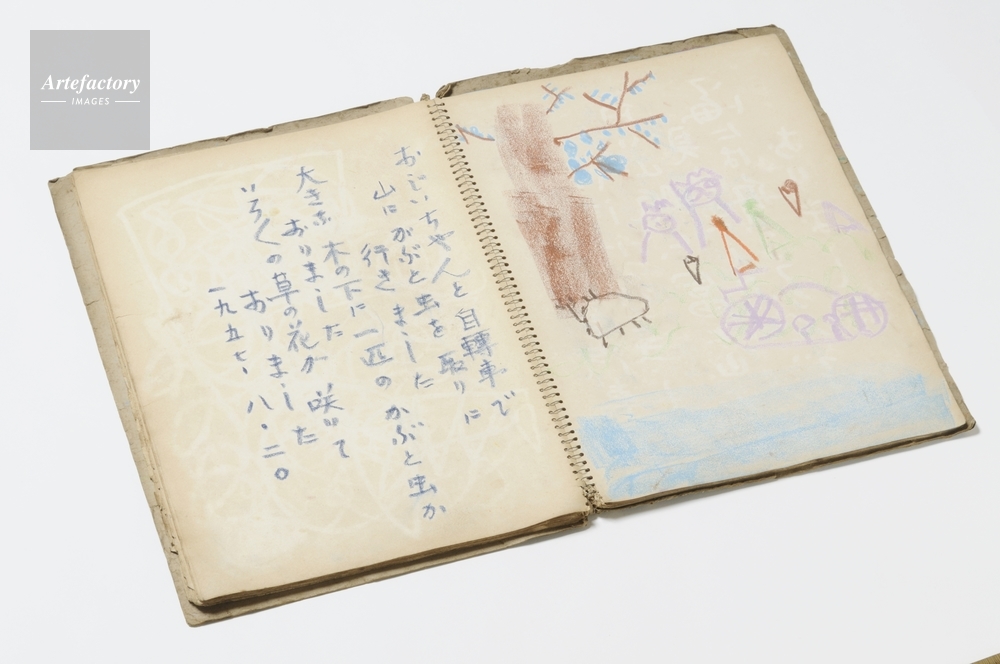 Artefactory
IMAGES
おじいちゃんと自轉車で
山にかぶと虫を取りに
行きました
大きな木の下に一匹のかぶと虫か
おりました
いろ〱の草の花が咲いて
ありました
一九五七、八・二〇